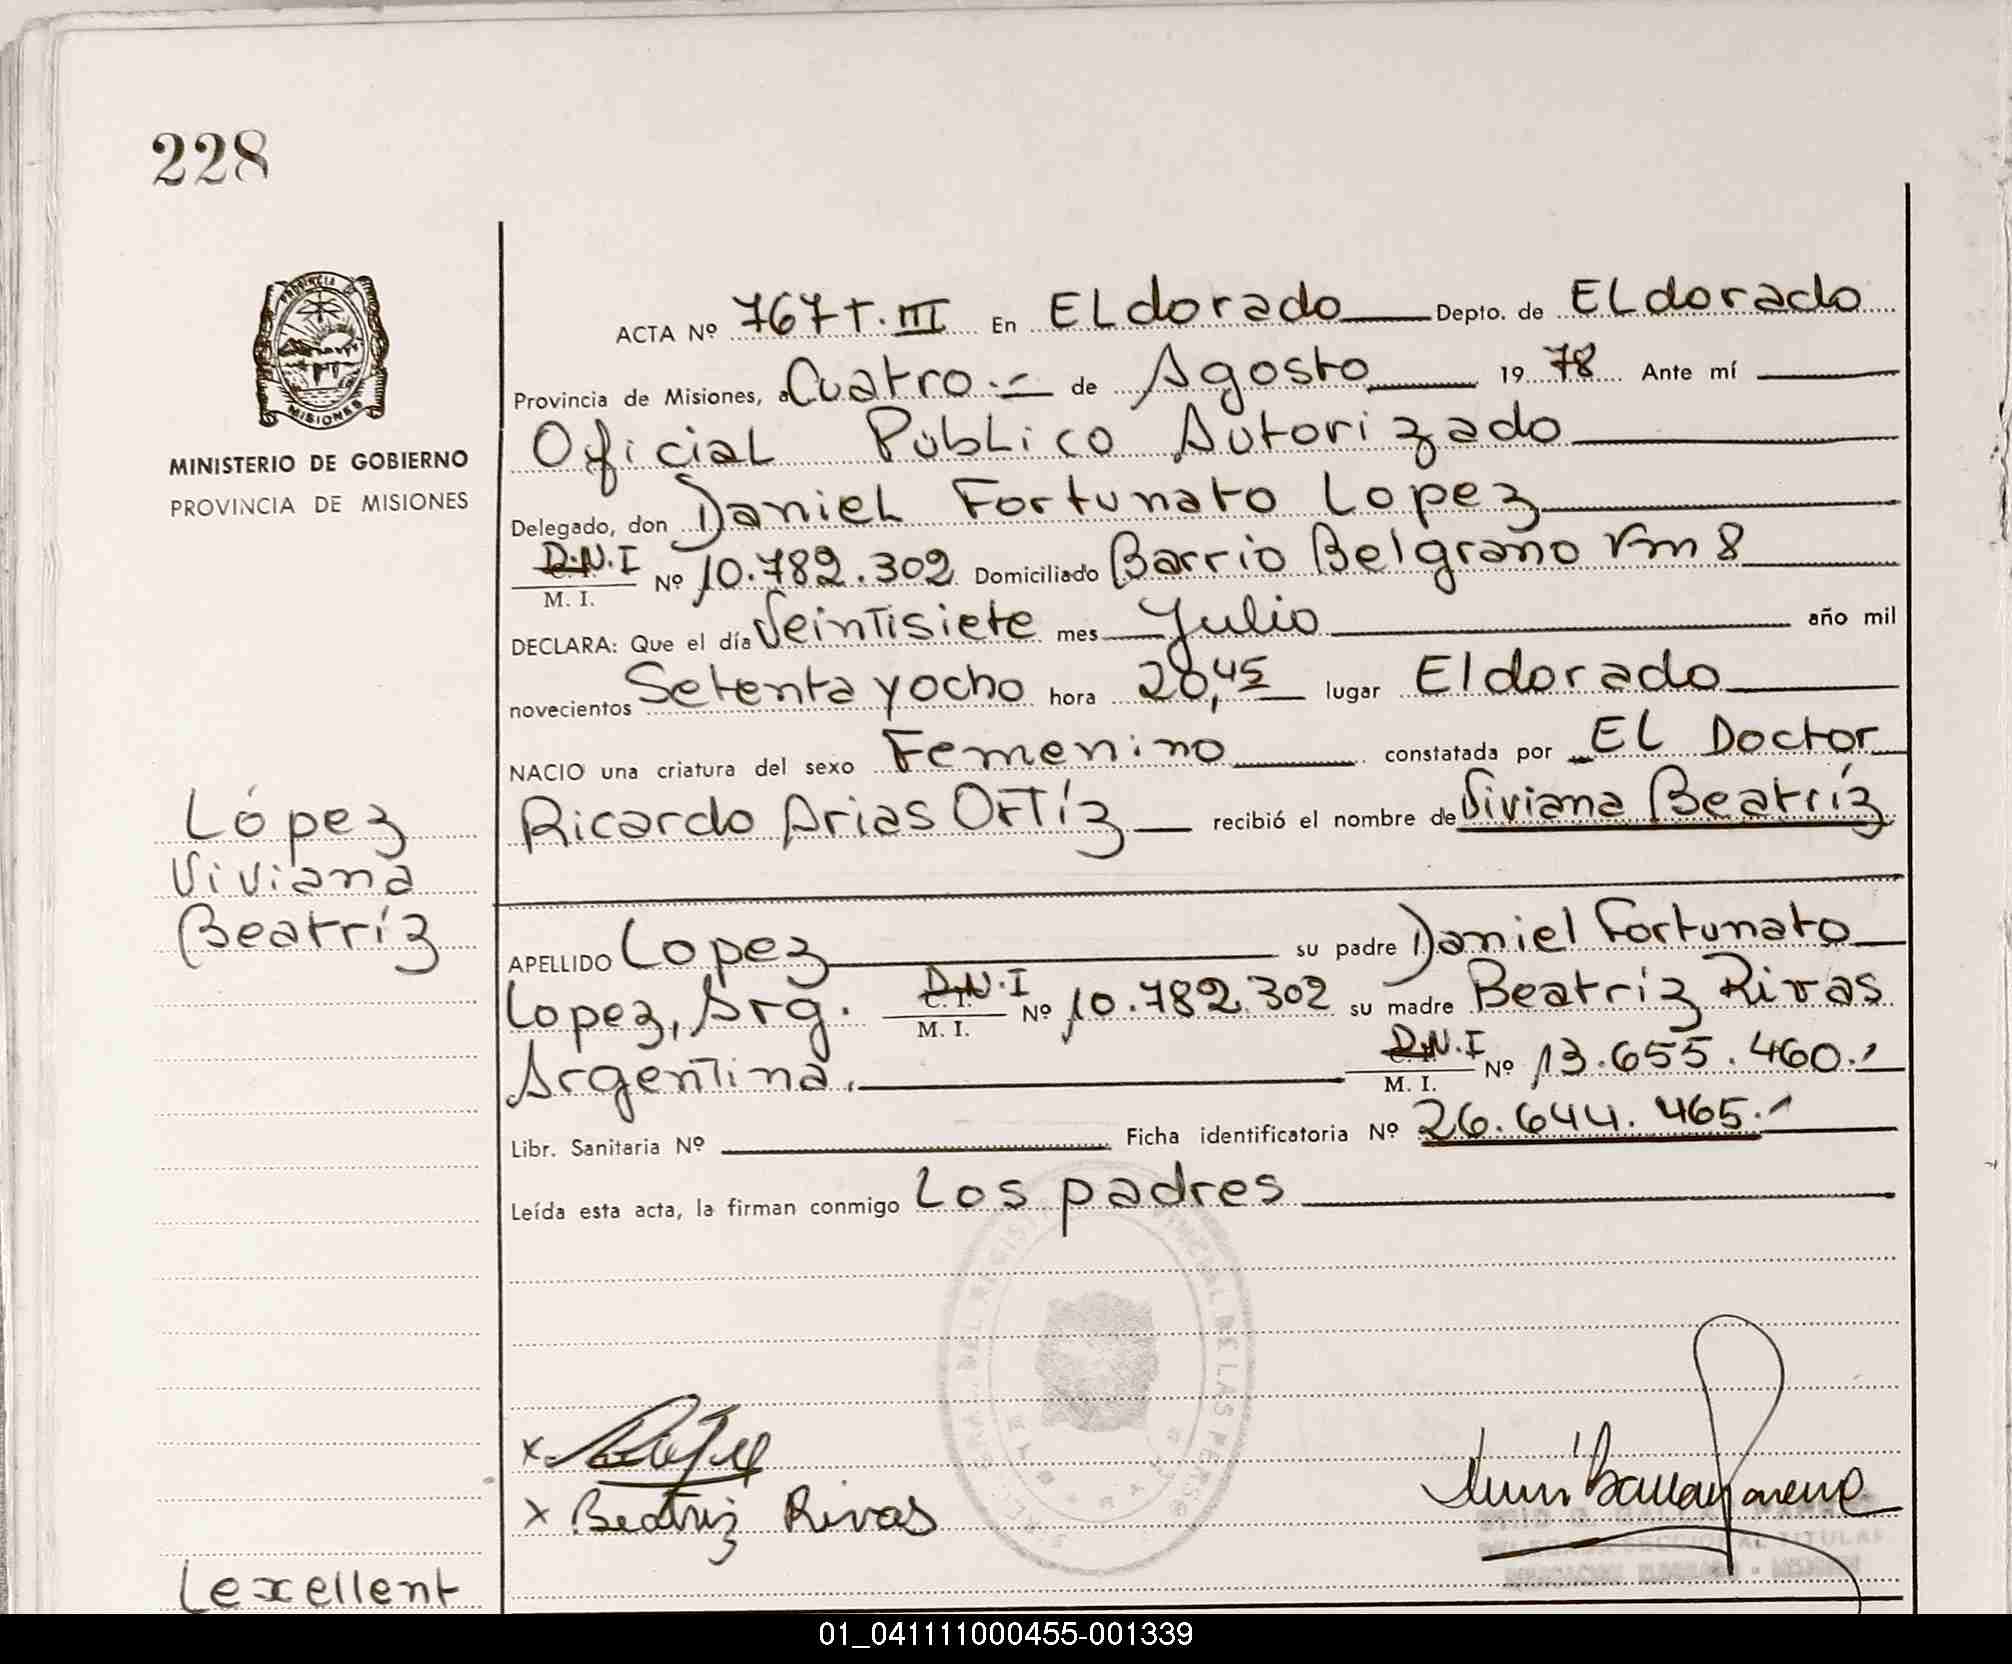 228
PROVINCIA DE
MISIONES
MINISTERIO DE GOBIERNO
PROVINCIA DE MISIONES
ACTA Nº 767 T. III En ELdorado Depto. de ELdorado
Provincia de Misiones, a Cuatro.- de Agosto 19 78 Ante mí
Oficial PúbLico Autorizado
Delegado, don DanieL Fortunato Lopez
D.N.I
M. I. Nº 10.782.302 Domiciliado Barrio Belgrano Km 8
DECLARA: Que el día Veintisiete mes Julio año mil
novecientos Setenta yocho hora 20,45 lugar Eldorado
NACIO una criatura del sexo Femenino constatada por EL Doctor
Ricardo Arias Ortíz recibió el nombre de Viviana Beatríz
López
Viviana
Beatríz
APELLIDO Lopez su padre Daniel Fortunato
Lopez, Arg. D.N.I
M. I. Nº 10.782.302 su madre Beatríz Rivas
Argentina. D.N.I
M. I. Nº 13.655.460.-
Libr. Sanitaria Nº Ficha identificatoria Nº 26.644.465.-
Leída esta acta, la firman conmigo Los padres
x
x Beatriz Rivas
Lexellent
01_041111000455-001339